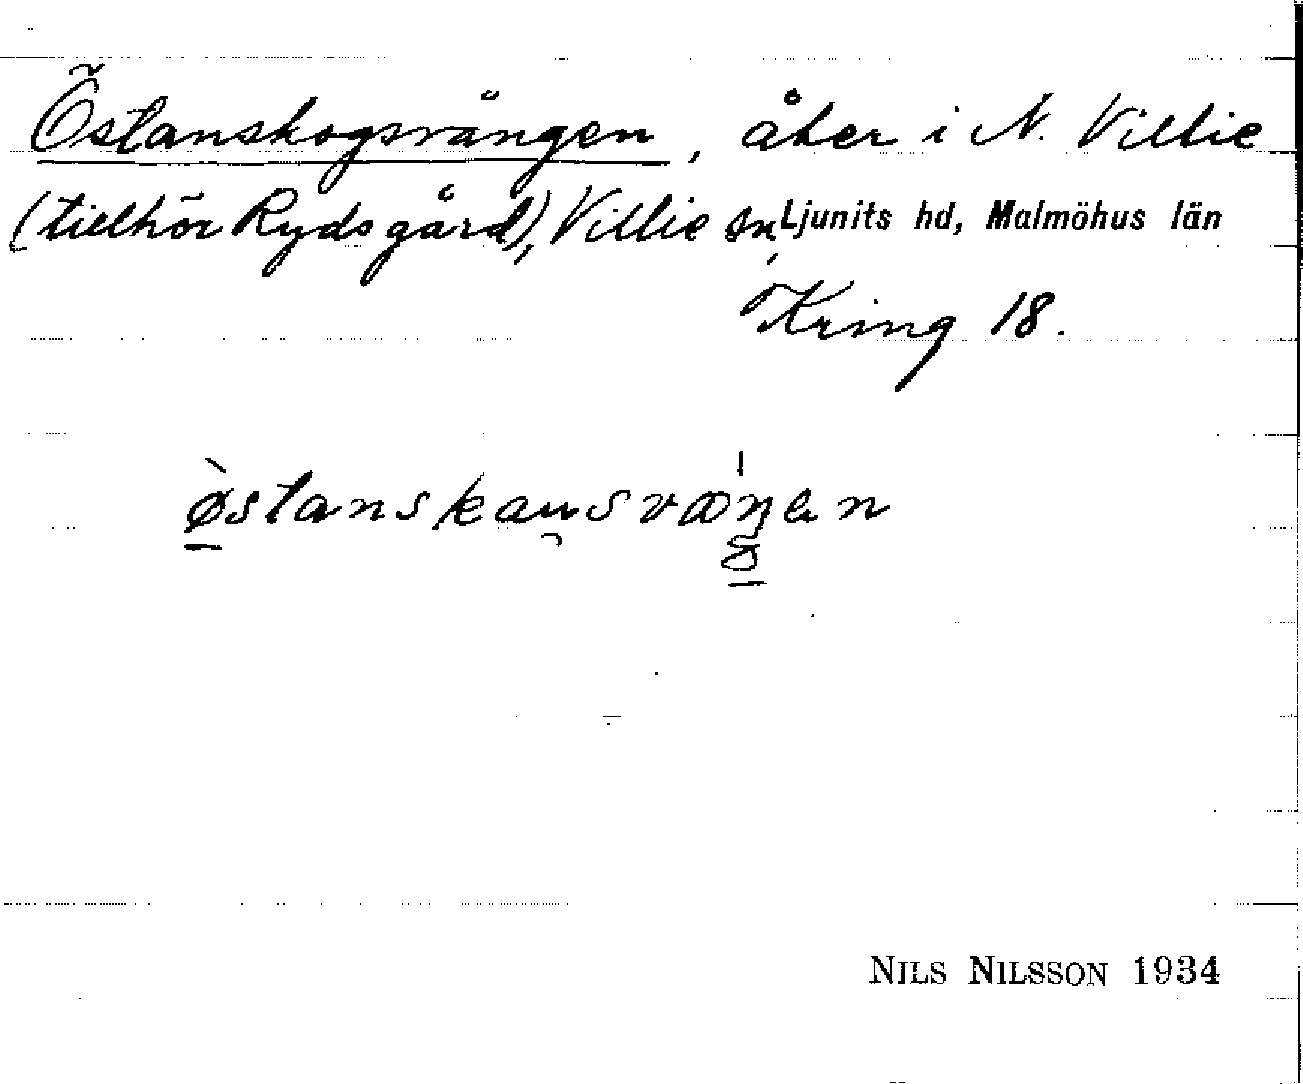 Östanskogsvången, åker i N. Villie
(tillhör Rydsgård), Villie sn, Ljunits hd, Malmöhus län
Kring 18.
østanskau̯svæŋen
NILS NILSSON 1934